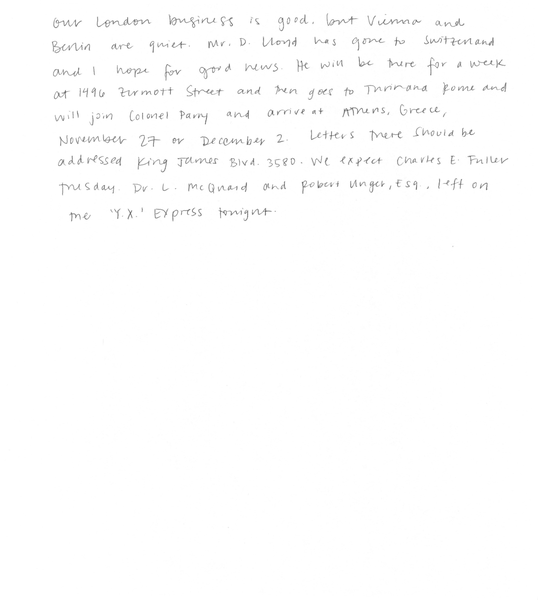 our London business is good, but Vienna and
Berlin are quiet. Mr. D. Lloyd has gone to Switzerland
and I hope for good news. He will be there for a week
at 1496 Zermott Street and then goes to Turin and Rome and
will join Colonel Parry and arrive at Athens, Greece,
November 27 or December 2. Letters there should be
addressed King James Blvd. 3580. We expect Charles E. Fuller
Tuesday. Dr. L. McQuard and Robert Unger, Esq., left on
the 'Y.X.' Express tonight.